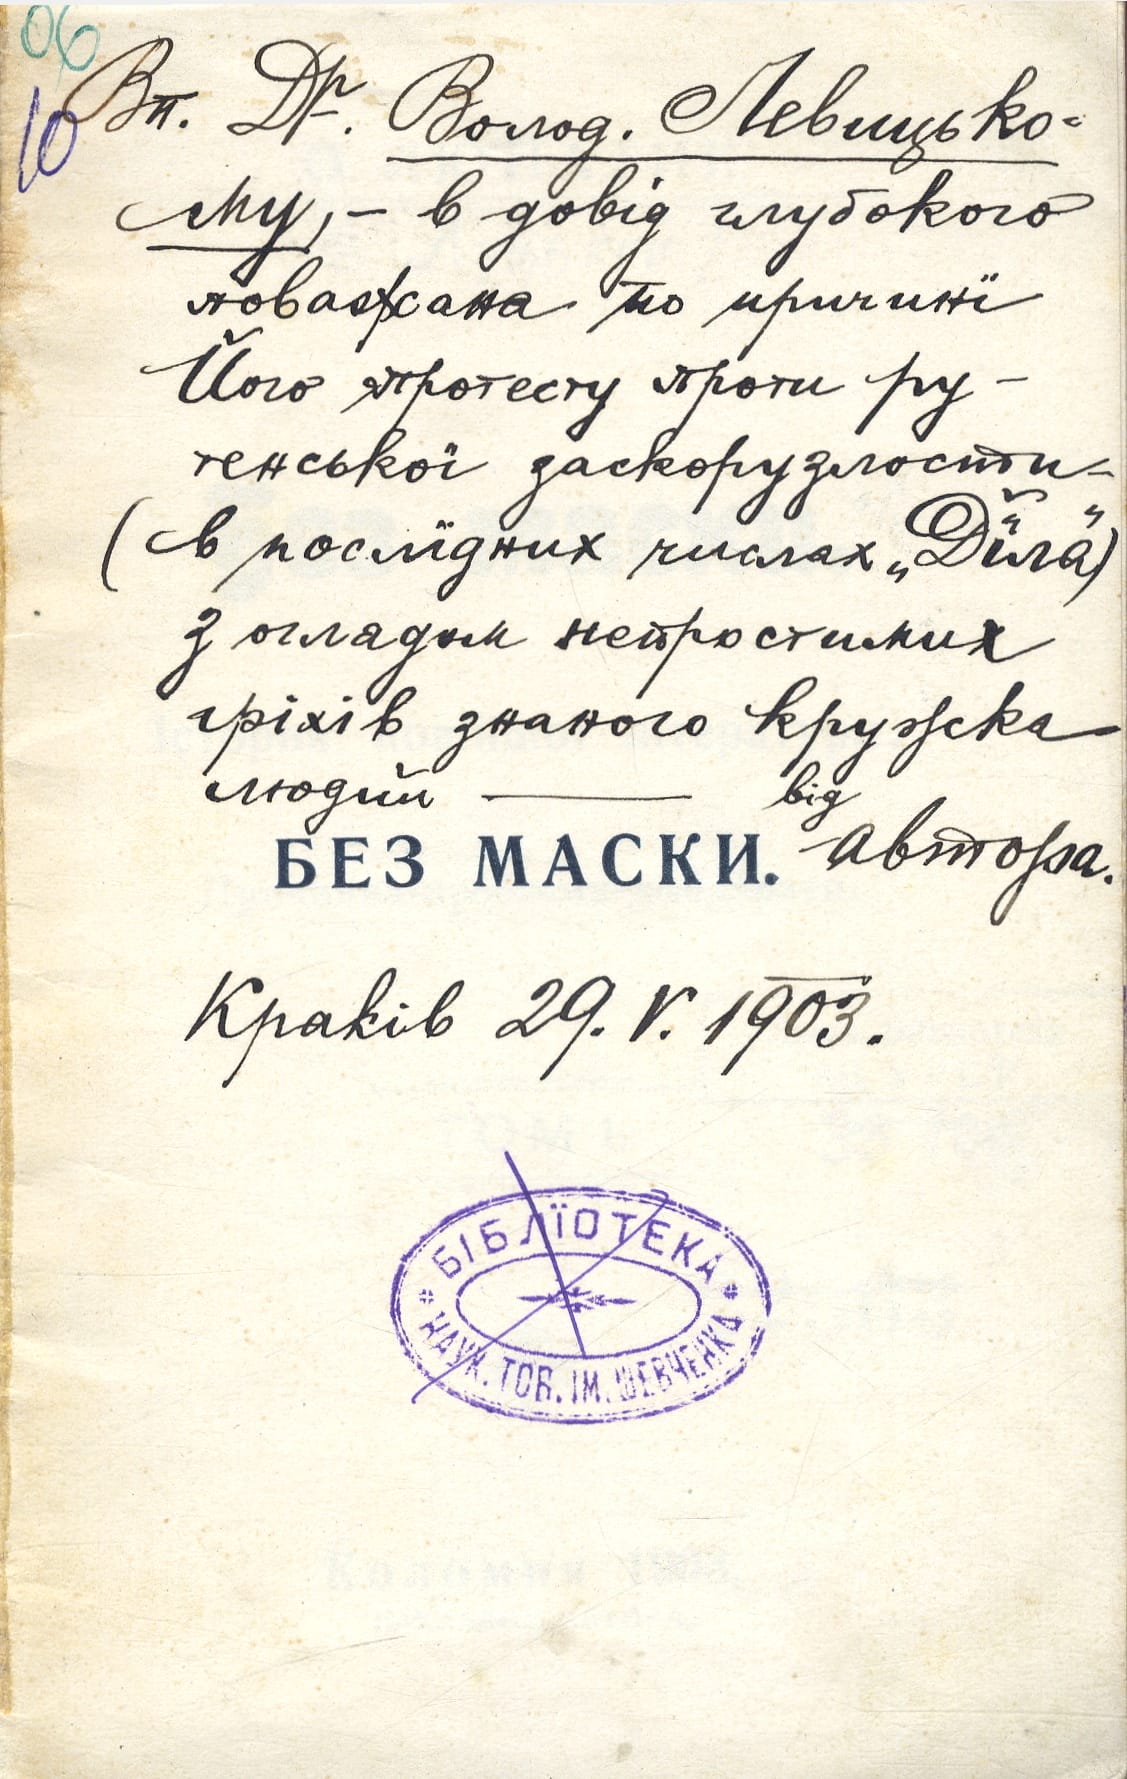 06
10
Вп. Др. Волод. Левицько-
му, – в довід глубокого
поважаня по причинї
Його протесту проти ру-
тенської заскорузлости –
(в послїдних числах „Дїла")
з оглядом непростимих
гріхів знаного кружка
людий — від
автора.
БЕЗ МАСКИ.
Краків 29. V. 1903.
БІБЛЇОТЕКА
НАУК. ТОВ. ІМ. ШЕВЧЕНКА